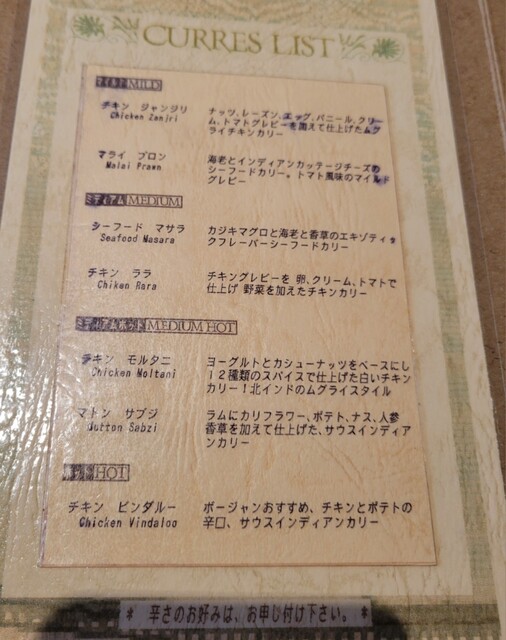 CURRES LIST
マイルド MILD
チキン ジャンジリ ナッツ、レーズン、エッグ、パニール、クリー
Chicken Zenjri ム、トマトグレビーを加えて仕上げたムグ
ライチキンカリー
マライ プロン 海老とインディアンカッテージチーズの
Malai Prawn シーフードカリー。トマト風味のマイルド
グレビー
ミディアム MEDIUM
シーフード マサラ カジキマグロと海老と香草のエキゾティッ
Seafood Masara クフレーバーシーフードカリー
チキン ララ チキングレビーを 卵、クリーム、トマトで
Chiken Rara 仕上げ 野菜を加えたチキンカリー
ミディアムホット MEDIUM HOT
チキン モルタニ ヨーグルトとカシューナッツをベースにし
Chicken Moltani 12種類のスパイスで仕上げた白いチキン
カリー!北インドのムグライスタイル
マトン サブジ ラムにカリフラワー、ポテト、ナス、人参
Mutton Sabzi 香草を加えて仕上げた、サウスインディア
ンカリー
HOT
チキン ビンダルー ボージャンおすすめ、チキンとポテトの
Chicken Vindaloo 辛口、サウスインディアンカリー
* 辛さのお好みは、お申し付け下さい。 *